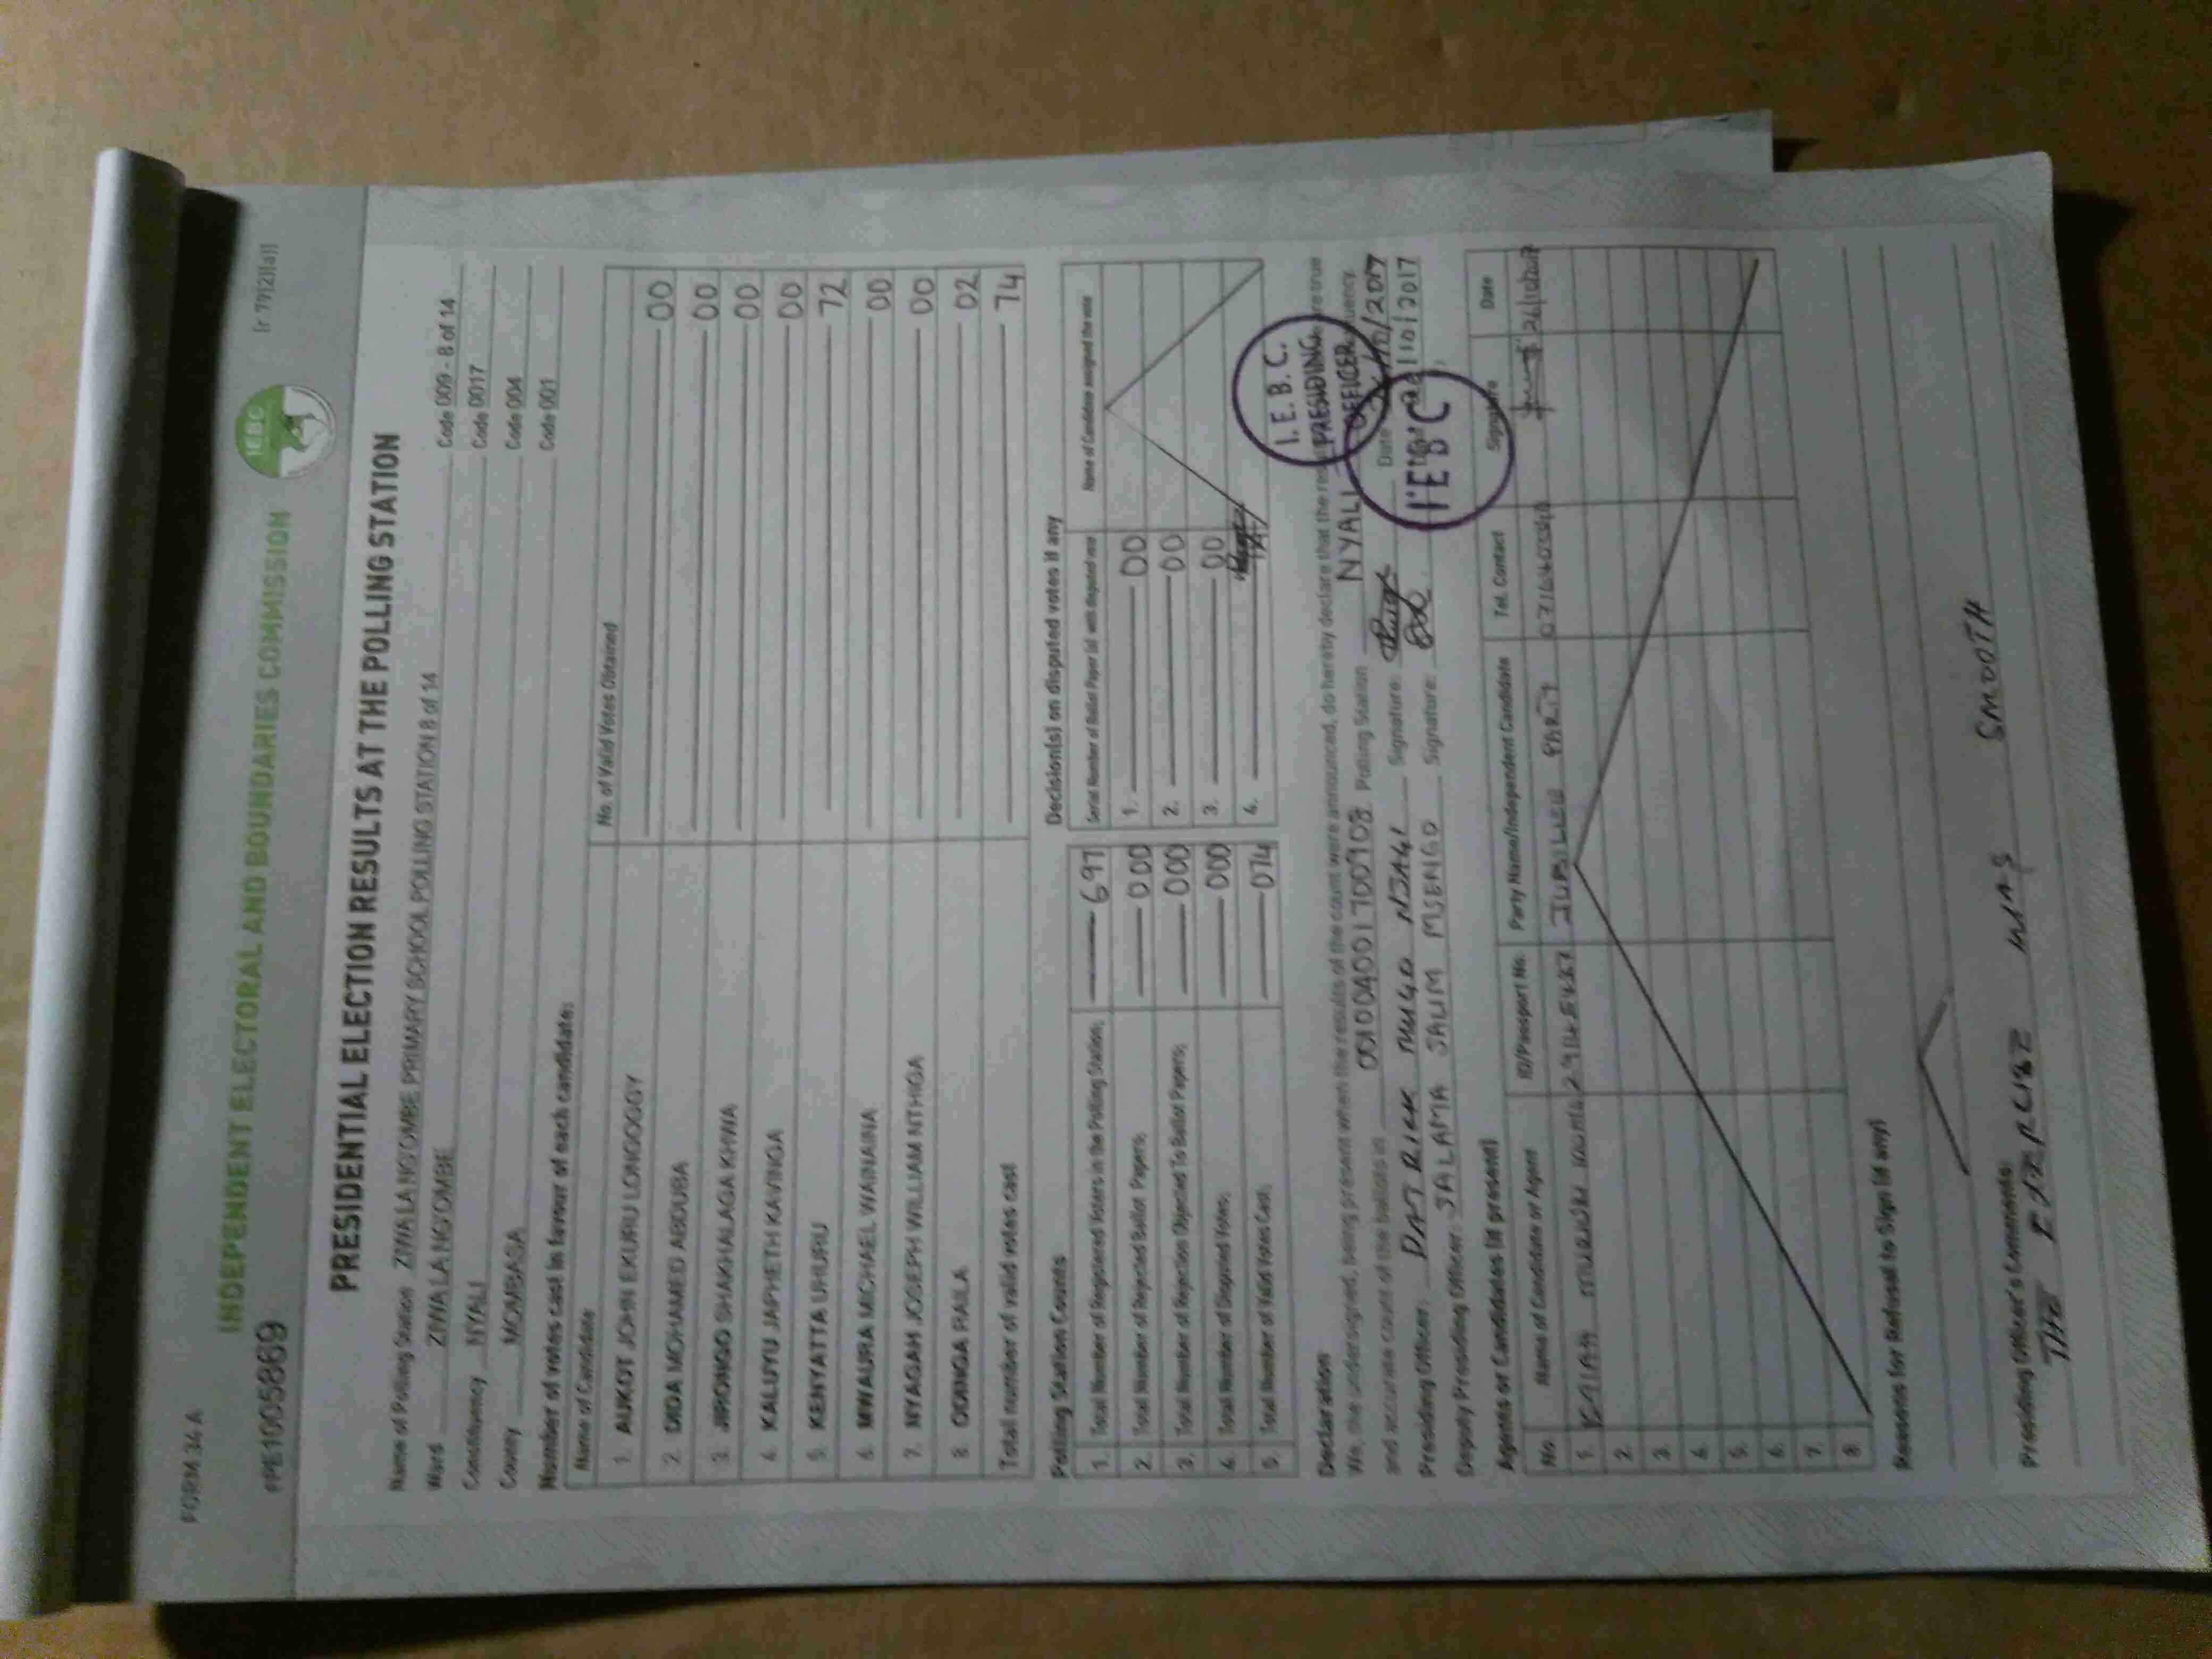 FORM 34 A
[r 79(2)(a)]
INDEPENDENT ELECTORAL AND BOUNDARIES COMMISSION
IEBC
#PE1005869
PRESIDENTIAL ELECTION RESULTS AT THE POLLING STATION
Name of Polling Station ZIWA LA NG'OMBE PRIMARY SCHOOL POLLING STATION 8 of 14 Code 009 - 8 of 14
Ward ZIWA LA NG'OMBE Code 0017
Constituency NYALI Code 004
County MOMBASA Code 001
Number of votes cast in favour of each candidate:
Name of Candidate No. of Valid Votes Obtained
1. AUKOT JOHN EKURU LONGOGGY 00
2. DIDA MOHAMED ABDUBA 00
3. JIRONGO SHAKHALAGA KHWA 00
4. KALUYU JAPHETH KAVINGA 00
5. KENYATTA UHURU 72
6. MWAURA MICHAEL WAINAINA 00
7. NYAGAH JOSEPH WILLIAM NTHIGA 00
8. ODINGA RAILA 02
Total number of valid votes cast 74
Polling Station Counts
1. Total Number of Registered Voters in the Polling Station; 697
2. Total Number of Rejected Ballot Papers; 000
3. Total Number of Rejection Objected To Ballot Papers; 000
4. Total Number of Disputed Votes; 000
5. Total Number of Valid Votes Cast; 074
Decision(s) on disputed votes if any
Serial Number of Ballot Paper (s) with disputed vote Name of Candidate assigned the vote
1. 00
2. 00
3. 00
4.
Declaration
We, the undersigned, being present when the results of the count were announced, do hereby declare that the are true
and accurate count of the ballots in 001004001700908 Polling Station NYALI
Presiding Officer: PATRICK THUGO NJAGI Signature: Date
Deputy Presiding Officer: SALAMA SALUM MSENGO Signature: 10/2017
I.E.B.C.
PRESIDING
OFFICER
I.E.B.C
Agents or Candidates (if present)
No. Name of Candidate or Agent ID/Passport No. Party Name/Independent Candidate Tel. Contact Signature Date
1. JUBILEE PARTY 26/10/2017
2.
3.
4.
5.
6.
7.
8.
Reasons for Refusal to Sign (if any)
Presiding Officer's Comments:
THE EXERCISE WAS SMOOTH